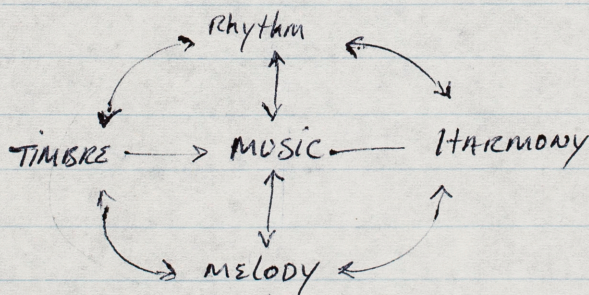 Rhythm
TiMBRE MUSiC HARMONY
MELODY